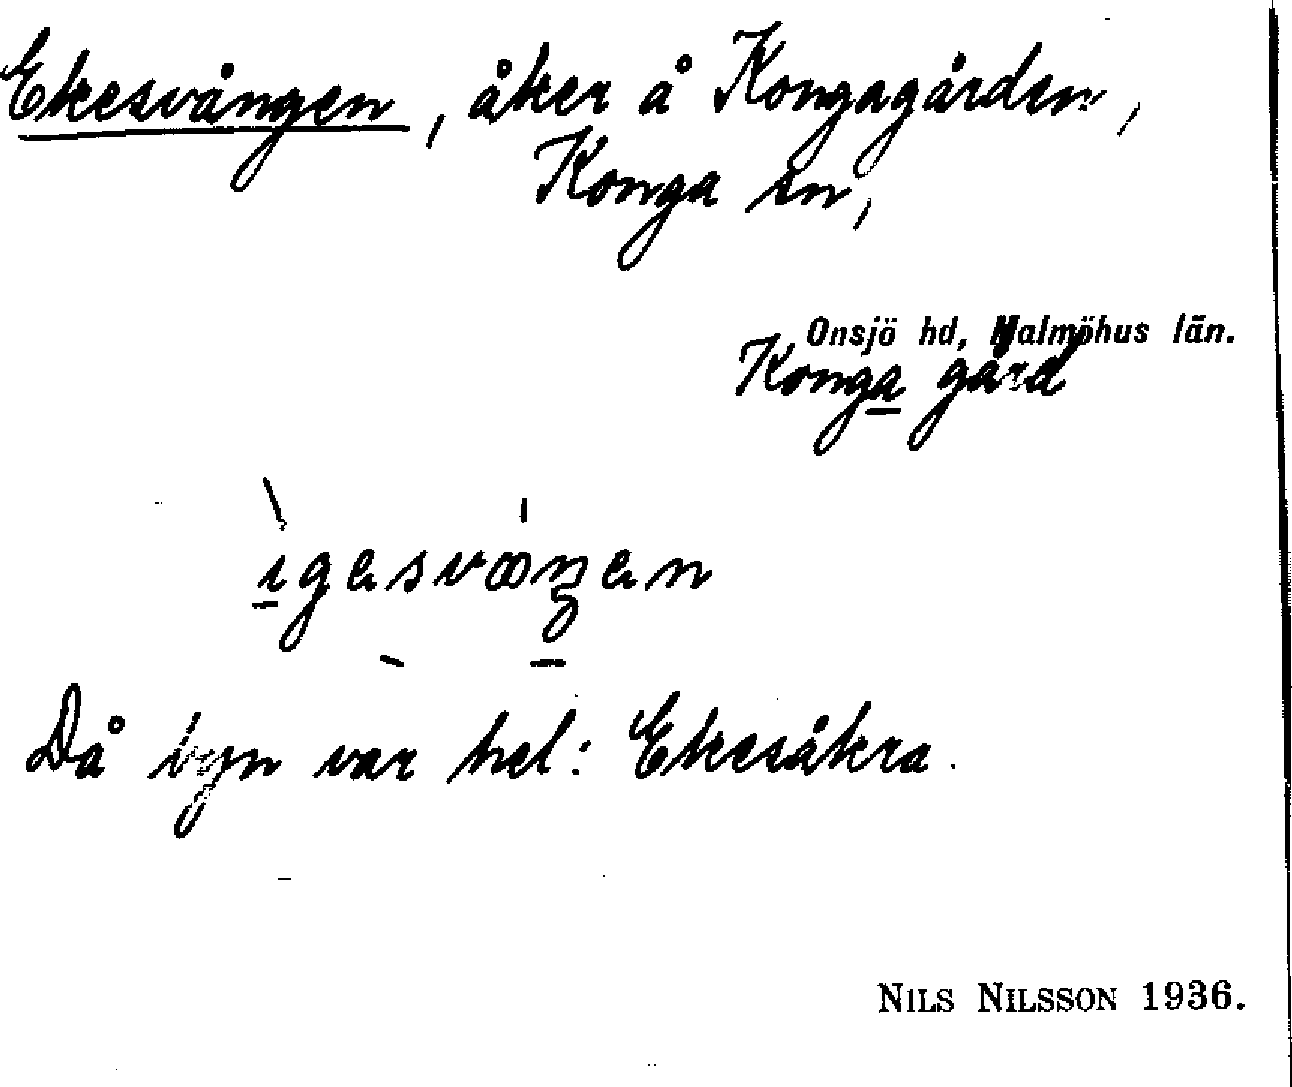 Ekesvången, åker å Kongagården,
Konga sn,
Onsjö hd, Malmöhus län.
Konga gård
igesvaŋen
Då byn var hel: Ekesåkra.
NILS NILSSON 1936.